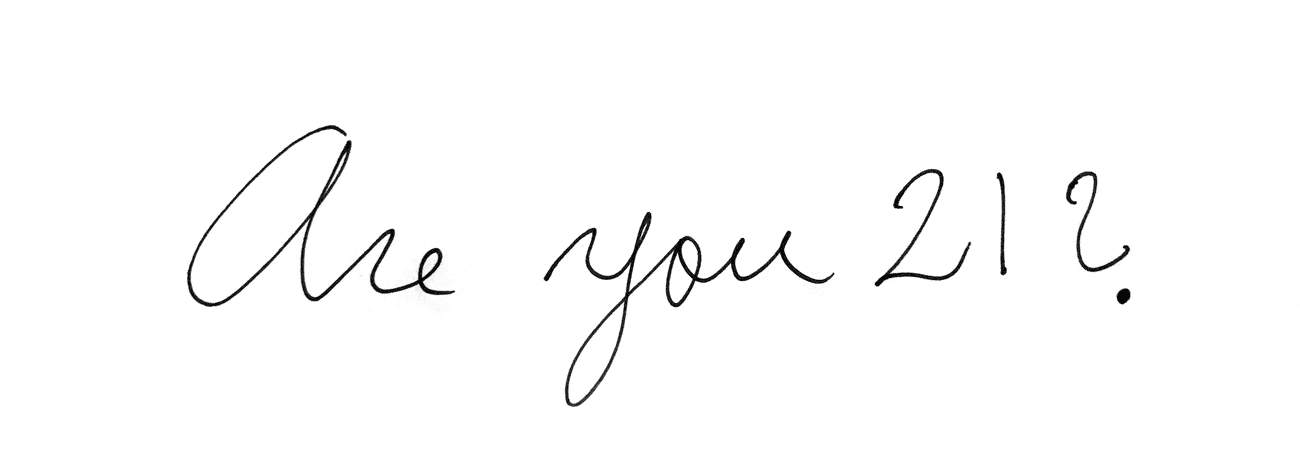 Are you 21?